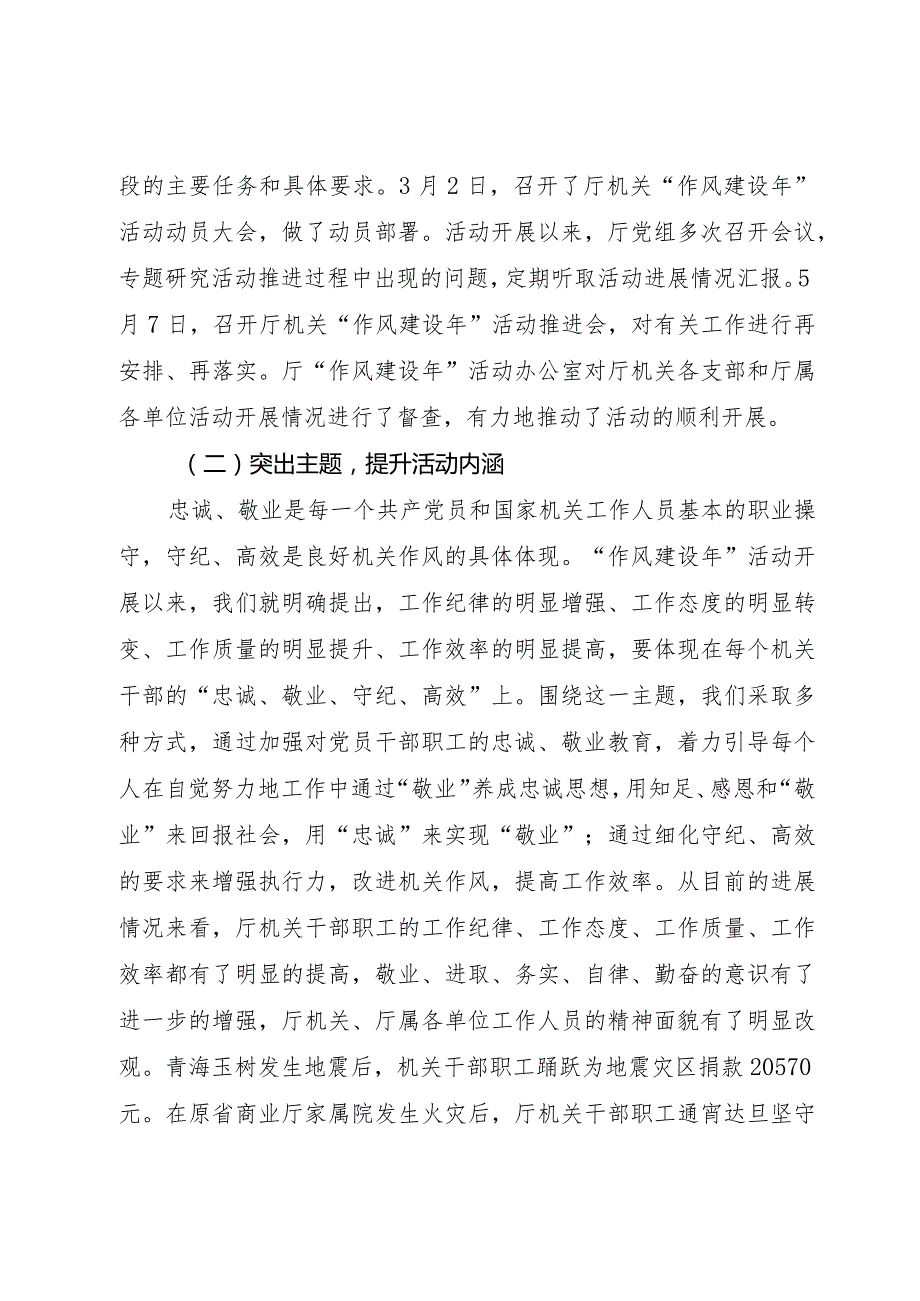 段的主要任务和具体要求。3 月 2 日，召开了厅机关“作风建设年”
活动动员大会，做了动员部署。活动开展以来，厅党组多次召开会议，
专题研究活动推进过程中出现的问题，定期听取活动进展情况汇报。5
月 7 日，召开厅机关“作风建设年”活动推进会，对有关工作进行再
安排、再落实。厅“作风建设年”活动办公室对厅机关各支部和厅属
各单位活动开展情况进行了督查，有力地推动了活动的顺利开展。
（二）突出主题，提升活动内涵
忠诚、敬业是每一个共产党员和国家机关工作人员基本的职业操
守，守纪、高效是良好机关作风的具体体现。“作风建设年”活动开
展以来，我们就明确提出，工作纪律的明显增强、工作态度的明显转
变、工作质量的明显提升、工作效率的明显提高，要体现在每个机关
干部的“忠诚、敬业、守纪、高效”上。围绕这一主题，我们采取多
种方式，通过加强对党员干部职工的忠诚、敬业教育，着力引导每个
人在自觉努力地工作中通过“敬业”养成忠诚思想，用知足、感恩和“敬
业”来回报社会，用“忠诚”来实现“敬业”；通过细化守纪、高效
的要求来增强执行力，改进机关作风，提高工作效率。从目前的进展
情况来看，厅机关干部职工的工作纪律、工作态度、工作质量、工作
效率都有了明显的提高，敬业、进取、务实、自律、勤奋的意识有了
进一步的增强，厅机关、厅属各单位工作人员的精神面貌有了明显改
观。青海玉树发生地震后，机关干部职工踊跃为地震灾区捐款 20570
元。在原省商业厅家属院发生火灾后，厅机关干部职工通宵达旦坚守